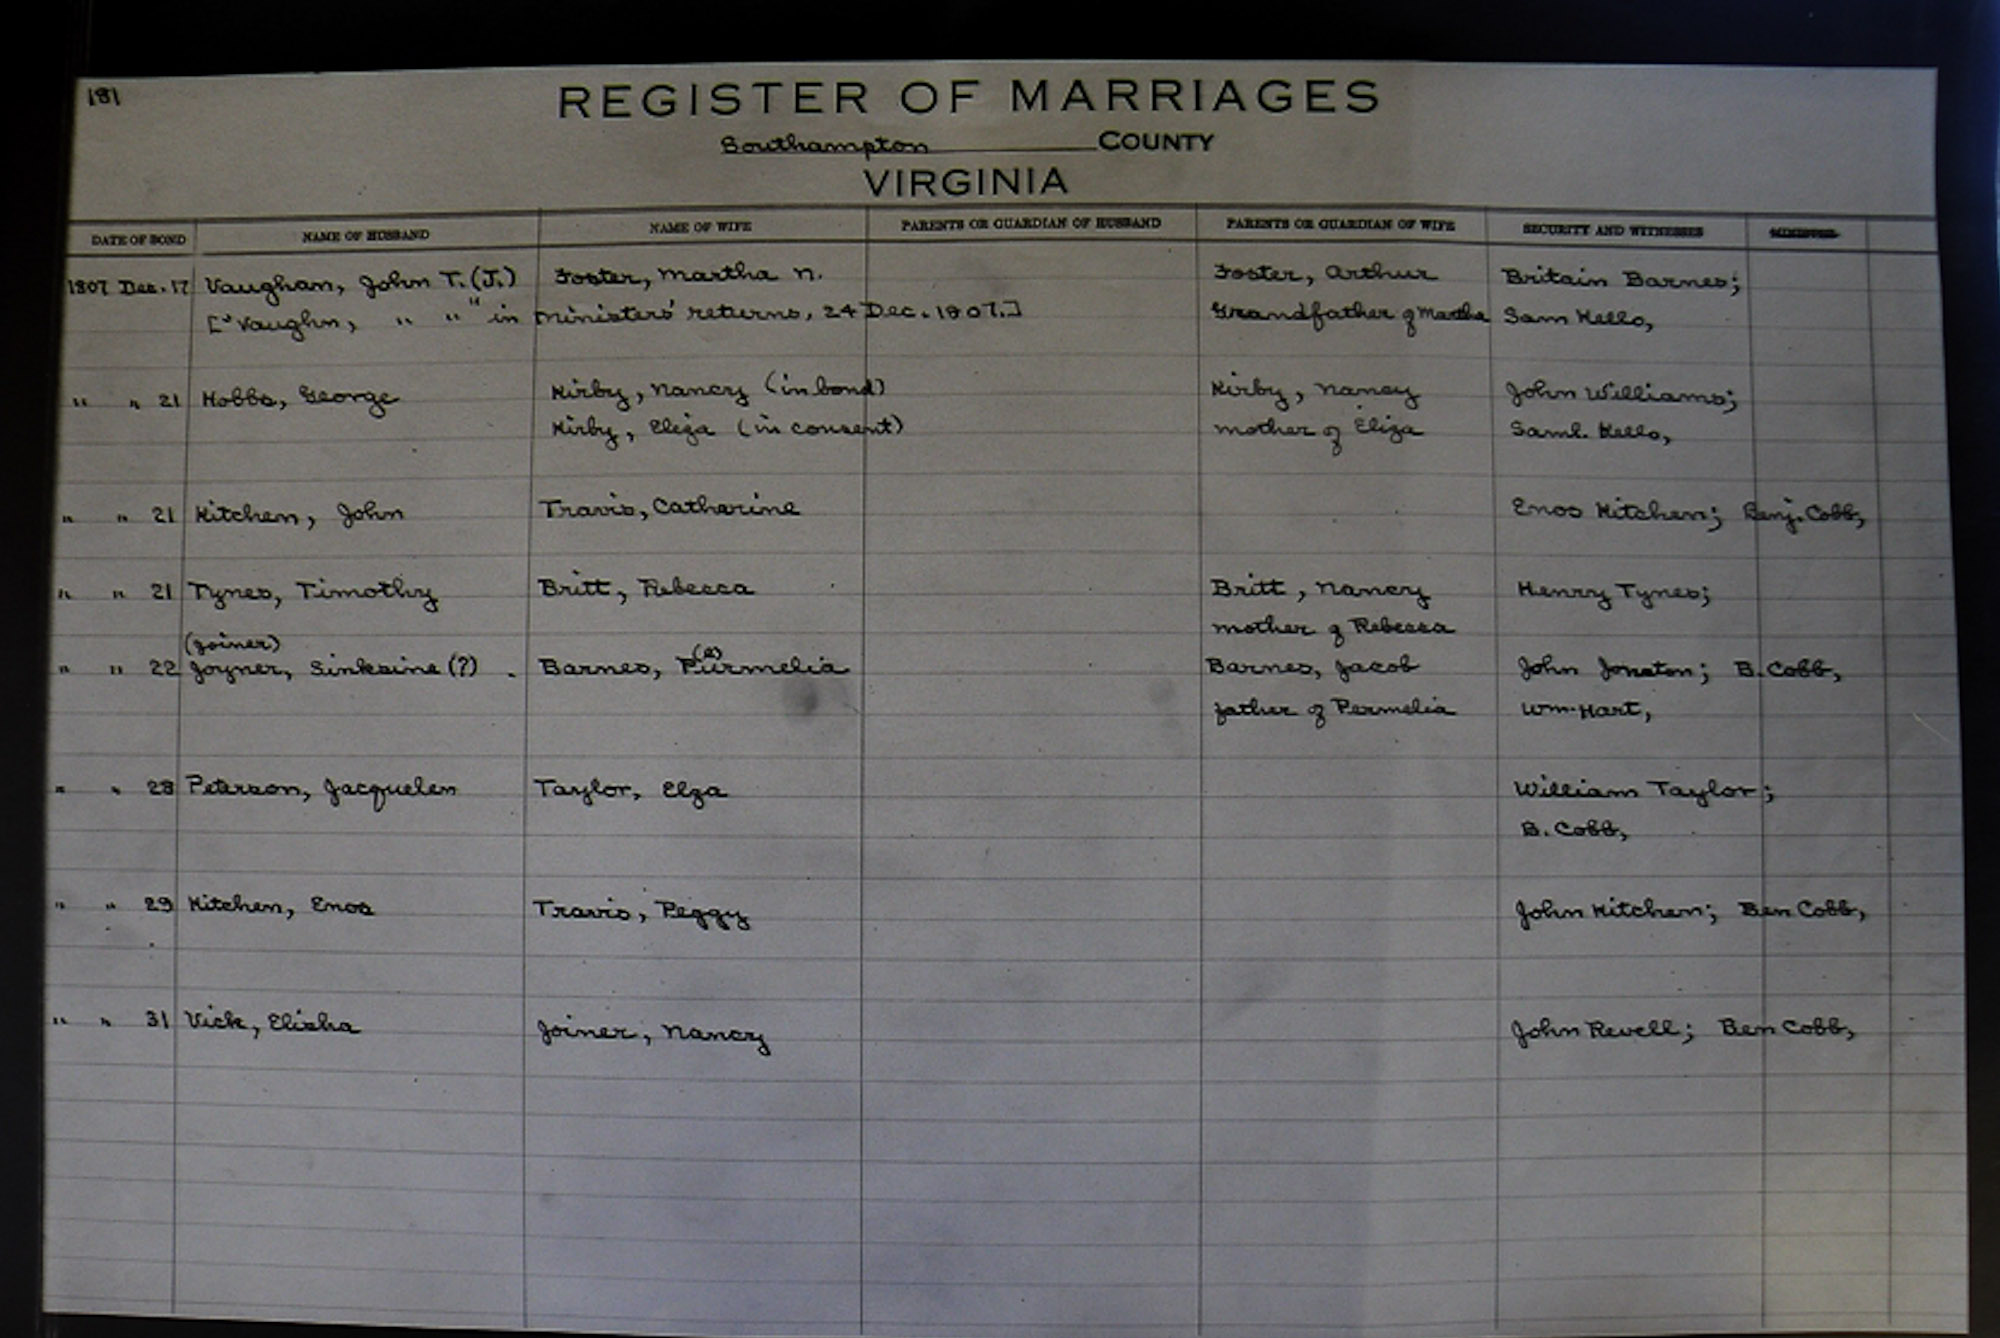 181
REGISTER OF MARRIAGES
Southampton COUNTY
VIRGINIA
DATE OF BOND NAME OF HUSBAND NAME OF WIFE PARENTS OR GUARDIAN OF HUSBAND PARENTS OR GUARDIAN OF WIFE SECURITY AND WITNESSES MINISTER
1807 Dec. 17 Vaughan, John T. (J.) Foster, Martha N. Foster, Arthur Britain Barnes;
["Vaughn, " " " in Ministers' returns, 24 Dec. 1807.] Grandfather of Martha Sam Kello,
" " 21 Hobbs, George Kirby, Nancy (in bond) Kirby, Nancy John Williams;
Kirby, Eliza (in consent) mother of Eliza Saml. Kello,
" " 21 Kitchen, John Travis, Catharine Enos Kitchen; Benj. Cobb,
" " 21 Tynes, Timothy Britt, Rebecca Britt, Nancy Henry Tynes;
mother of Rebecca
(Joiner) (e)
" " 22 Joyner, Sinksine (?) . Barnes, Purmelia Barnes, Jacob John Jonston; B. Cobb,
father of Permelia Wm. Hart,
" " 28 Peterson, Jacquelen Taylor, Elza William Taylor;
B. Cobb,
" " 29 Kitchen, Enos Travis, Peggy John Kitchen; Ben Cobb,
" " 31 Vick, Elisha Joiner, Nancy John Revell; Ben Cobb,